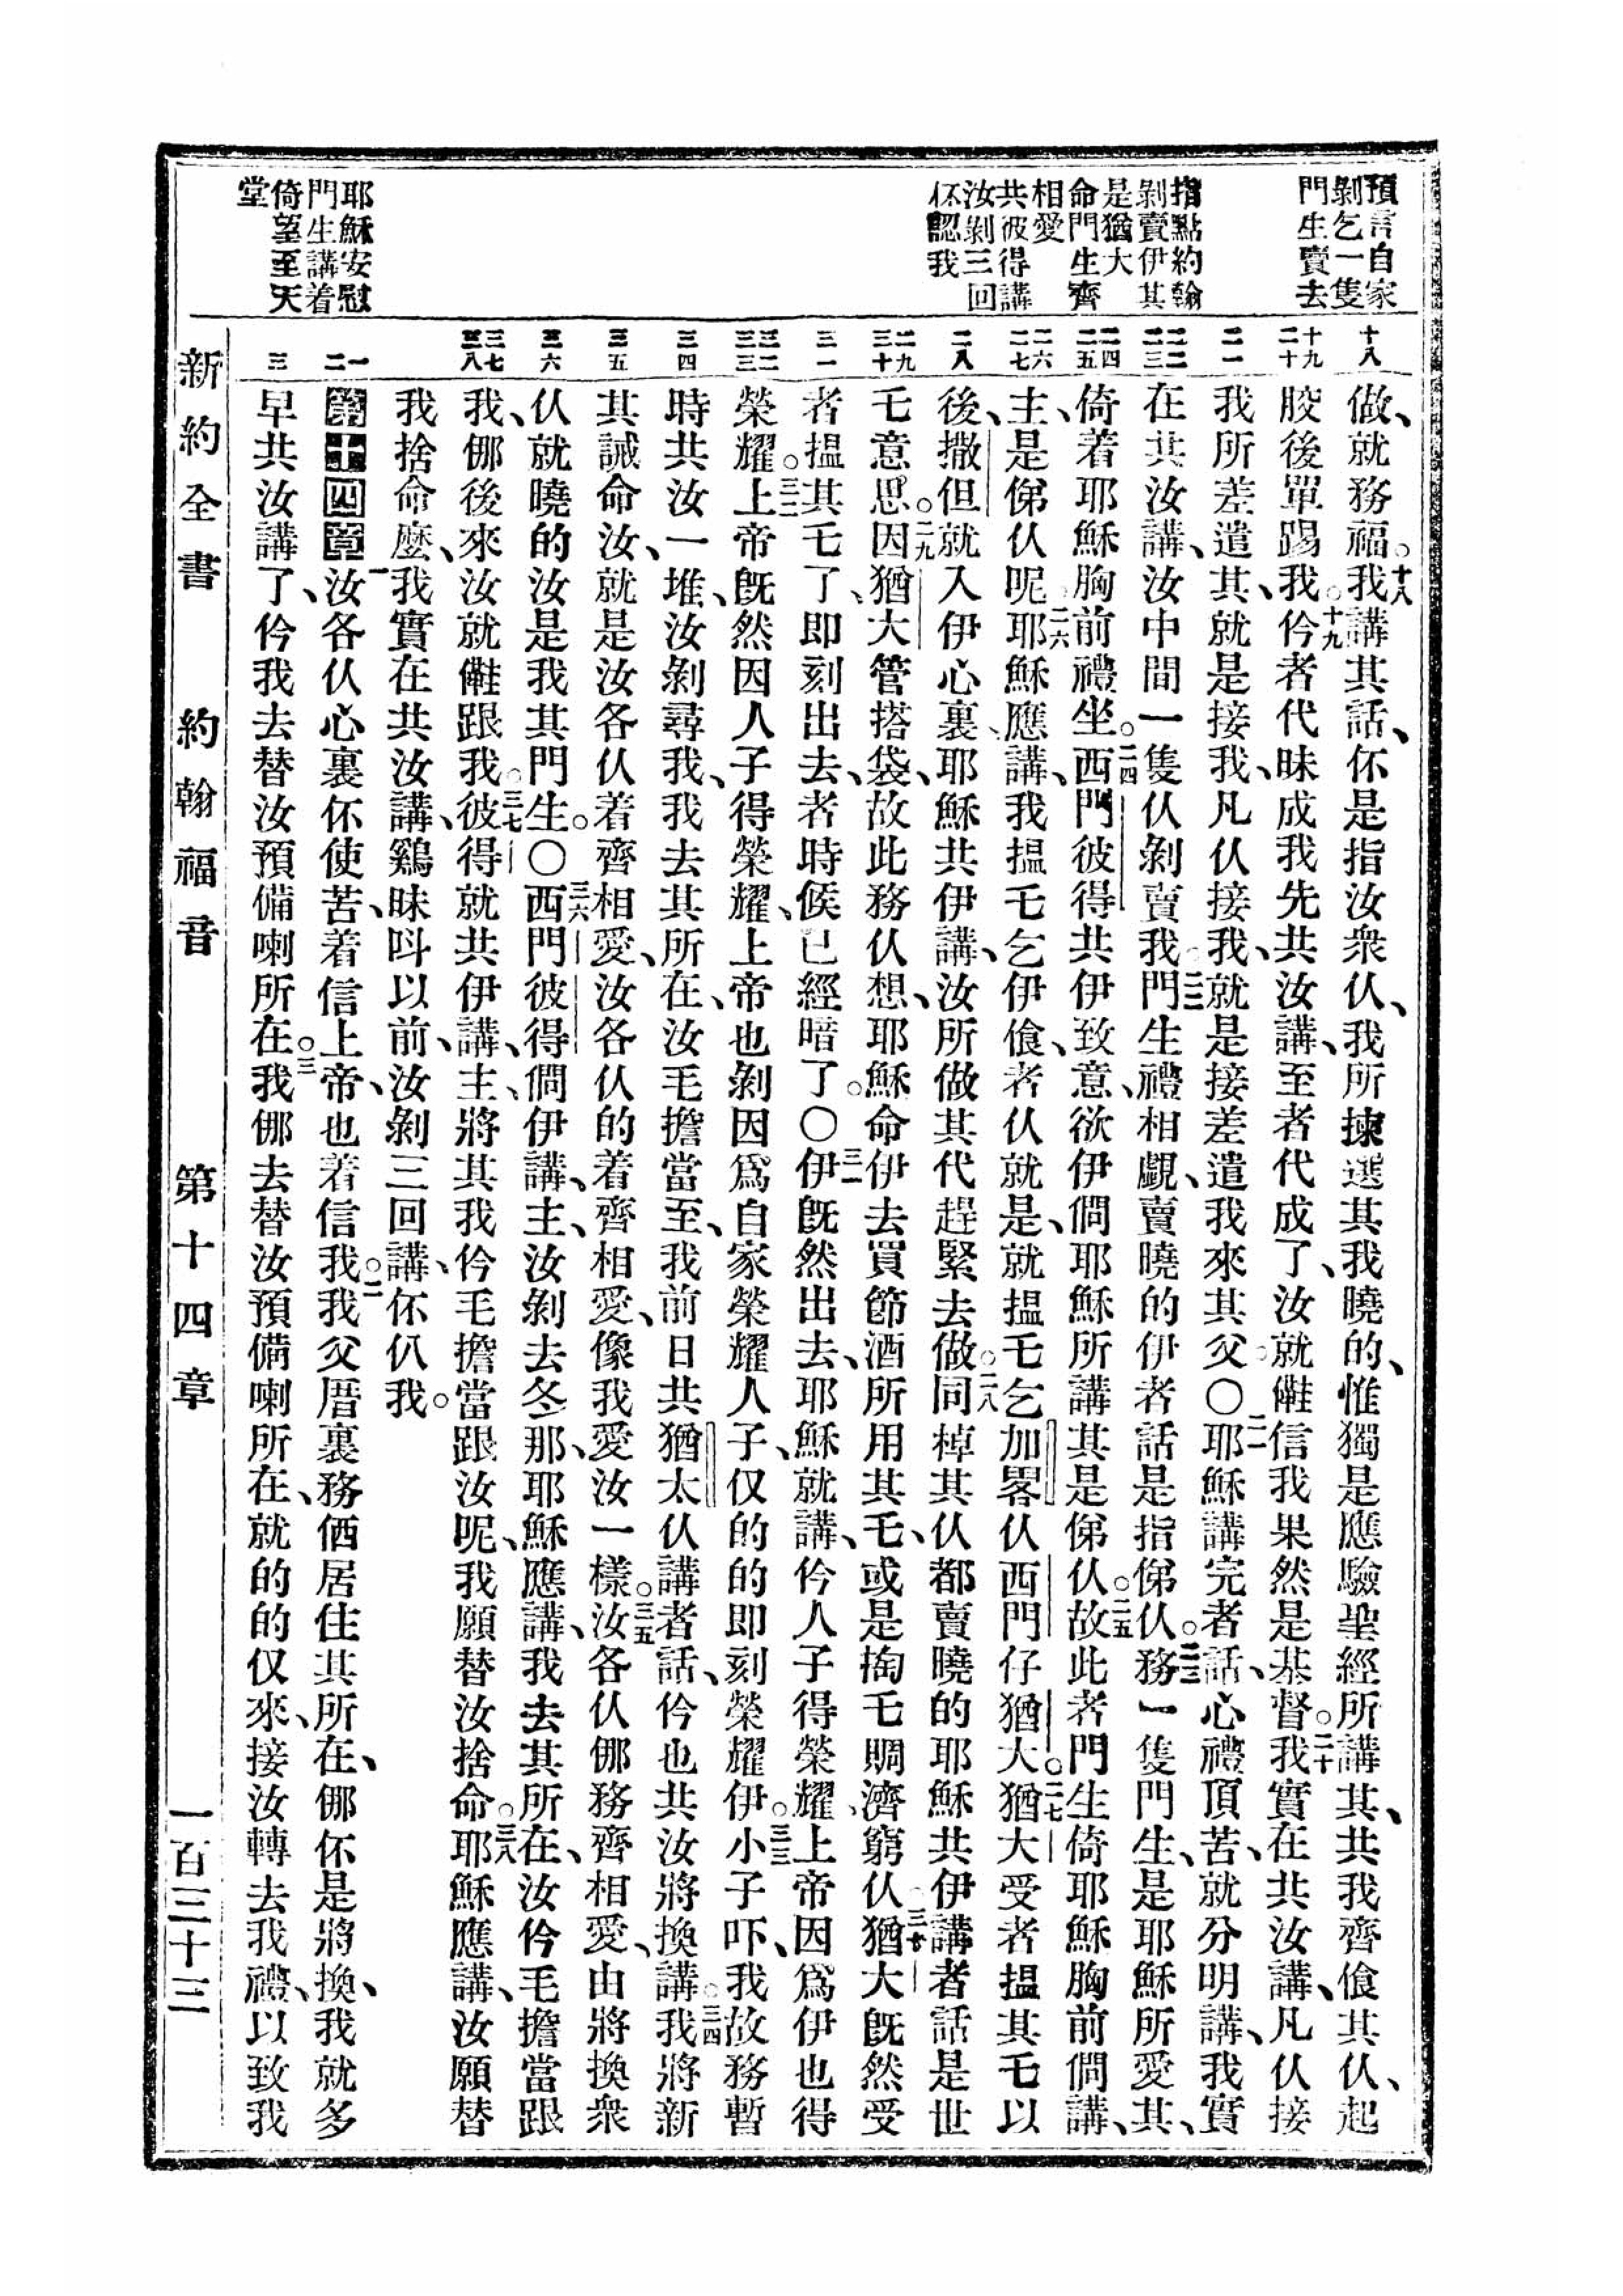 預言自家
剝乞一隻
門生賣去
指點約翰
剝賣伊其
是猶大
命門生齊
相愛
共彼得講
汝剝三回
伓認我
耶穌安慰
門生講着
倚望至天
堂
十八
十九
二十
二一
二二
二三
二四
二五
二六
二七
二八
二九
三十
三一
三二
三三
三四
三五
三六
三七
三八
一
二
三
做、就務福。十八我講其話、伓是指汝衆仈、我所揀選其我曉的、惟獨是應驗聖經所講其、共我齊飧其仈、起
骹後單踢我。十九仱者代昧成我先共汝講、至者代成了、汝就𠆧信我果然是基督。二十我實在共汝講、凡仈接
我所差遣其、就是接我、凡仈接我、就是接差遣我來其父。〇二一耶穌講完者話、心禮頂苦、就分明講、我實
在共汝講、汝中間一隻仈剝賣我。二二門生禮相覷、賣曉的伊者話是指俤仈。二三務一隻門生、是耶穌所愛其、
倚着耶穌胸前禮坐。二四西門彼得共伊致意、欲伊僩耶穌所講其是俤仈。二五故此者門生倚耶穌胸前僩講、
主、是俤仈呢。二六耶穌應講、我搵乇乞伊飧、者仈就是、就搵乇乞加畧仈西門仔猶大。二七猶大受者搵其乇以
後、撒但就入伊心裏、耶穌共伊講、汝所做其代趕緊去做。二八同棹其仈都賣曉的耶穌共伊講者話是世
乇意思。二九因猶大管搭袋、故此務仈想、耶穌命伊去買節酒所用其乇、或是掏乇賙濟窮仈。三十猶大旣然受
者搵其乇了、即刻出去、者時候已經暗了。〇三一伊旣然出去、耶穌就講、仱人子得榮耀、上帝因爲伊也得
榮耀。三二上帝旣然因人子得榮耀、上帝也剝因爲自家榮耀人子、仅的的即刻榮耀伊。三三小子吓、我故務暫
時共汝一堆、汝剝尋我、我去其所在、汝毛擔當至、我前日共猶太仈講者話、仱也共汝將換講。三四我將新
其誡命汝、就是汝各仈着齊相愛、汝各仈的着齊相愛、像我愛汝一樣。三五汝各仈㑚務齊相愛、由將換衆
仈就曉的汝是我其門生。〇三六西門彼得僩伊講、主、汝剝去冬那、耶穌應講、我去其所在、汝仱毛擔當跟
我、㑚後來汝就𠆧跟我。三七彼得就共伊講、主、將其我仱毛擔當跟汝呢、我願替汝捨命。三八耶穌應講、汝願替
我捨命麼、我實在共汝講、鷄昧呌以前、汝剝三回講、伓仈我。
第十四章 一汝各仈心裏伓使苦、着信上帝、也着信我。二我父厝裏務價居住其所在、㑚伓是將換、我就多
早共汝講了、仱我去替汝預備喇所在。三我㑚去替汝預備喇所在、就的的仅來、接汝轉去我禮、以致我
新約全書 約翰福音 第十四章 一百三十三